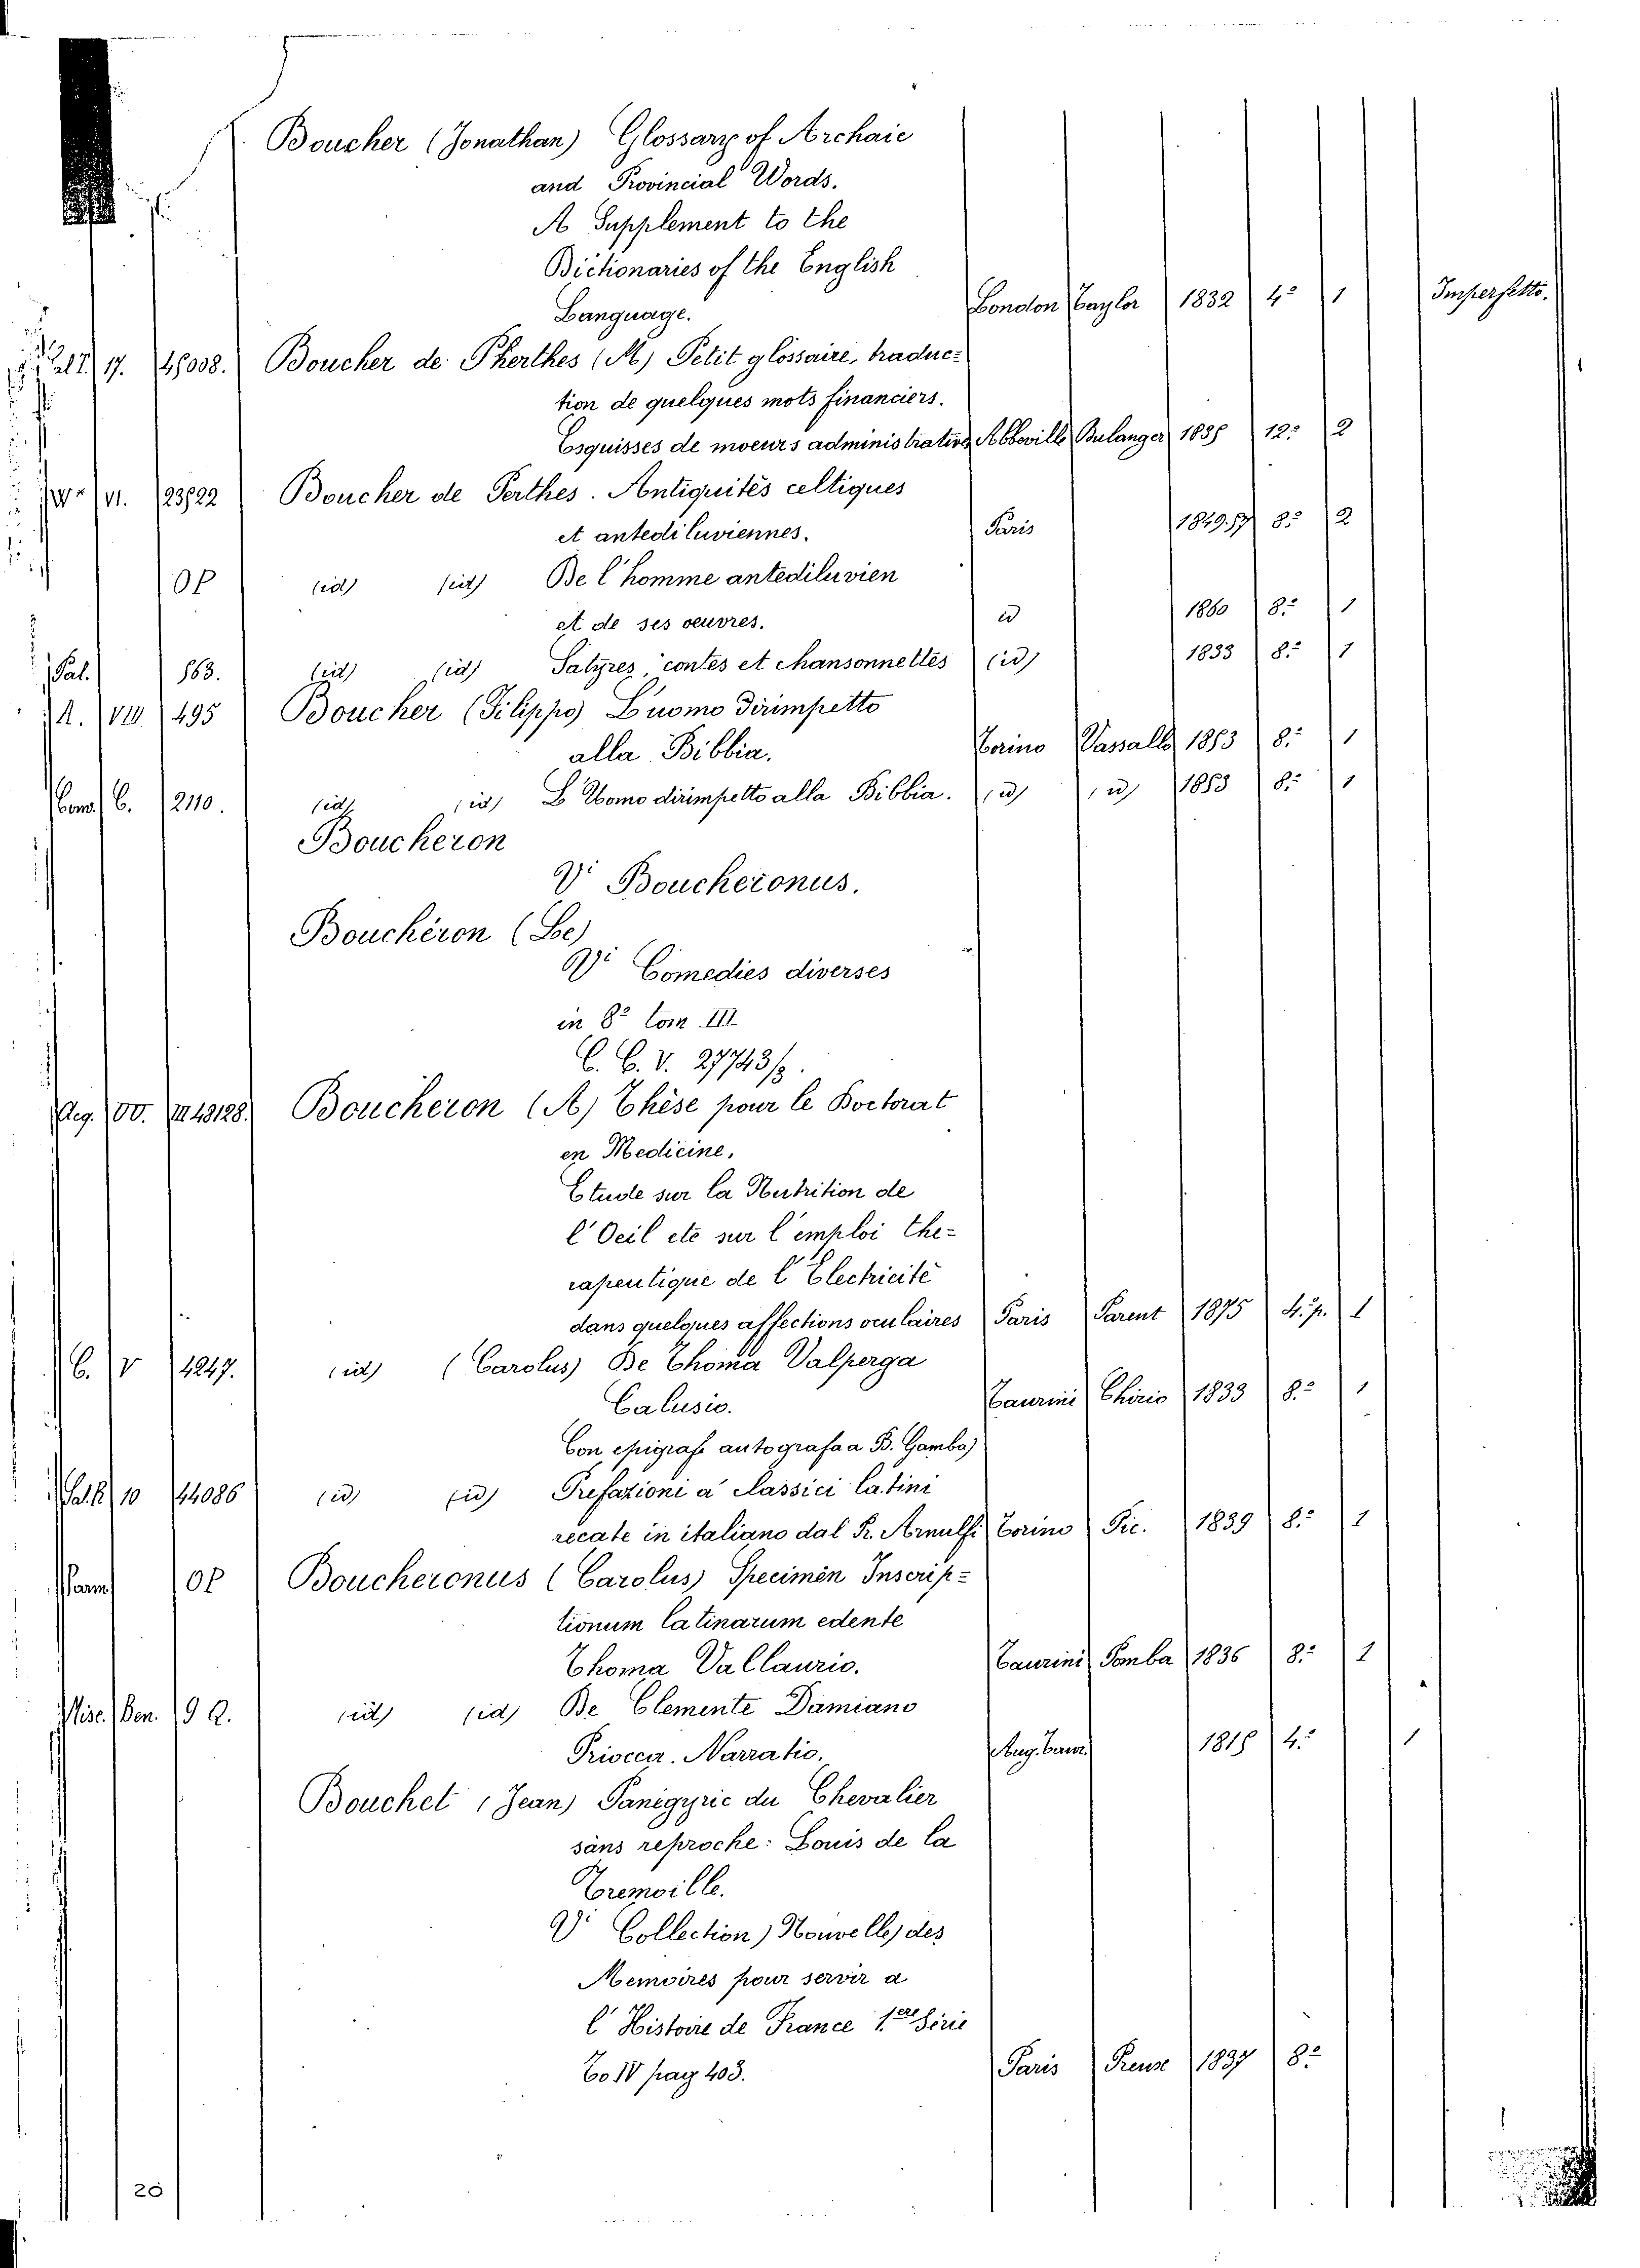 Boucher (Jonathan) Glossary of Archaic
and Provincial Words.
A Supplement to the
Dictionaries of the English
Language. London Taylor 1832 4º 1 Imperfetto.
17. Boucher de Pherthes (M) Petit glossaire, traduc=
tion de quelques mots financiers.
Esquisses de moeurs administratives Abbeville Bulanger 1835 12º 2
VI. 23522 Boucher de Perthes. Antiquités celtiques
et antediluviennes. Paris 1849.57 8º 2
OP (id) (id) De l'homme antediluvien
et de ses oeuvres. id 1860 8º 1
Pal. 563. (id) (id) Satyres, contes et chansonnettes (id) 1833 8º 1
A. VIII 495 Boucher (Filippo) L'uomo dirimpetto
alla Bibbia. Torino Vassallo 1853 8º 1
Com. C. 2110. (id) (id) L'Uomo dirimpetto alla Bibbia. (id) (id) 1853 8º 1
Boucheron
Vi Boucheronus.
Bouchéron (Le)
Vi Comedies diverses
in 8º tom III
C. C. V. 27743/3.
Reg. DD. III 43128. Boucheron (A) Thèse pour le Doctorat
en Medicine,
Etude sur la Nutrition de
l'Oeil etc sur l'emploi the=
rapeutique de l'Electricité
dans quelques affections oculaires Paris Parent 1875 4.p. 1
C. V 4247. (id) (Carolus) De Thoma Valperga
Calusio. Taurini Chirio 1833 8º 1
Con epigrafe autografa a B. Gamba)
10 44086 (id) (id) Prefazioni a' classici latini
recate in italiano dal P. Arnulfi Torino Fic. 1839 8º 1
OP Boucheronus (Carolus) Specimen Inscrip=
tionum latinarum edente
Thoma Vallaurio. Taurini Pomba 1836 8º 1
Misc. Ben. 9 Q. (id) (id) De Clemente Damiano
Priocca. Narratio. Aug. Taur. 1815 4º 1
Bouchet (Jean) Panégyric du Chevalier
sans reproche: Louis de la
Tremoille.
Vi Collection) Nouvelle) des
Memoires pour servir a
l'Histoire de France 1.ere Série
To IV pag 403. Paris 1837 8º
20